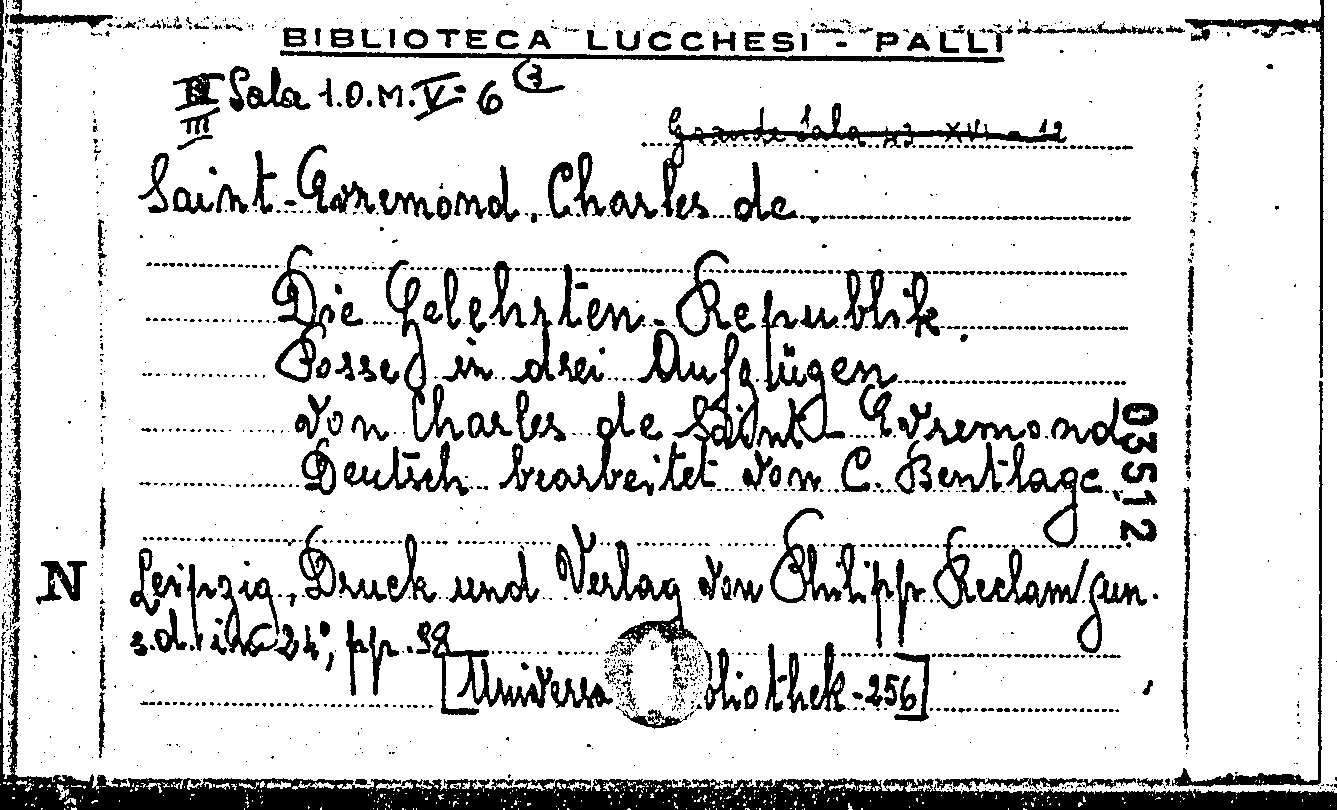 BIBLIOTECA LUCCHESI - PALLI
III Sala 1.O.M. V. 6 (3
Grande Sala 43 XVI - 12
Saint-Evremond, Charles de.
Die Gelehrten-Republik.
Posse in drei Aufzügen
von Charles de Saint-Evremond
Deutsch bearbeitet von C. Bentlage,
03512
N
Leipzig, Druck und Verlag von Philipp Reclam jun.
s.d. in 24°, pp. 38
[Universa bliothek-256]